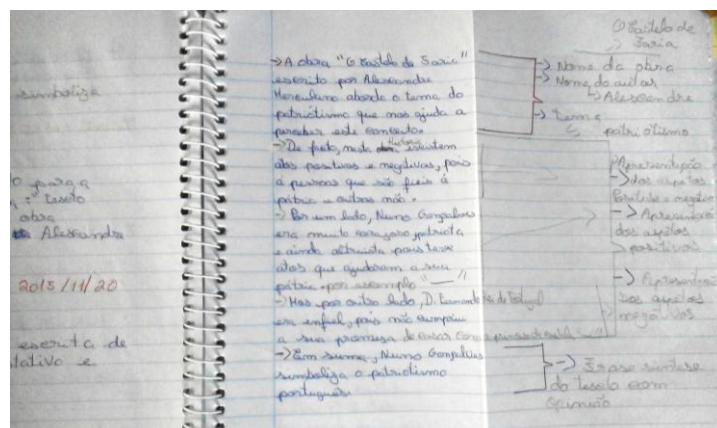 simboliza
o para a
: "texto
obra
Alexandre
2015/11/20
escrita de
tativo e
-> A obra "O Castelo de Faria"
escrito por Alexandre
Herculano aborda o tema do
patriotismo que nos ajuda a
perceber este conceito.
-> De fato, nesta História existem
atos positivos e negativos, pois
á pessoas que são fieis á
pátria e outras não.
-> Por um lado, Nuno Gonçalves
era muito corajoso, patriota
e ainda altruista pois teve
atos que ajudaram a sua
pátria, por exemplo "___"
-> Mas por outro lado, D. Fernando Rei de Portugal
era infiel, pois não cumpriu
a sua promessa de casar com a princesa de
-> Em suma, Nuno Gonçalves
simboliza o patriotismo
português.
O Castelo de
Faria
-> Nome da obra
-> Nome do autor
-> Alexandre
-> tema
patriotismo
Apresentação
-> dos aspetos
Positivos e negativos
-> Apresentação
dos aspetos
positivos
-> Apresentação
Dos aspetos
negativos
-> Frase síntese
do texto com
opinião